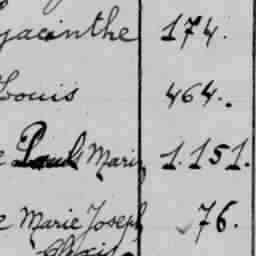 Hyacinthe 174.
Louis 464.
e Paul Marie 1.151.
e Marie Joseph 76.